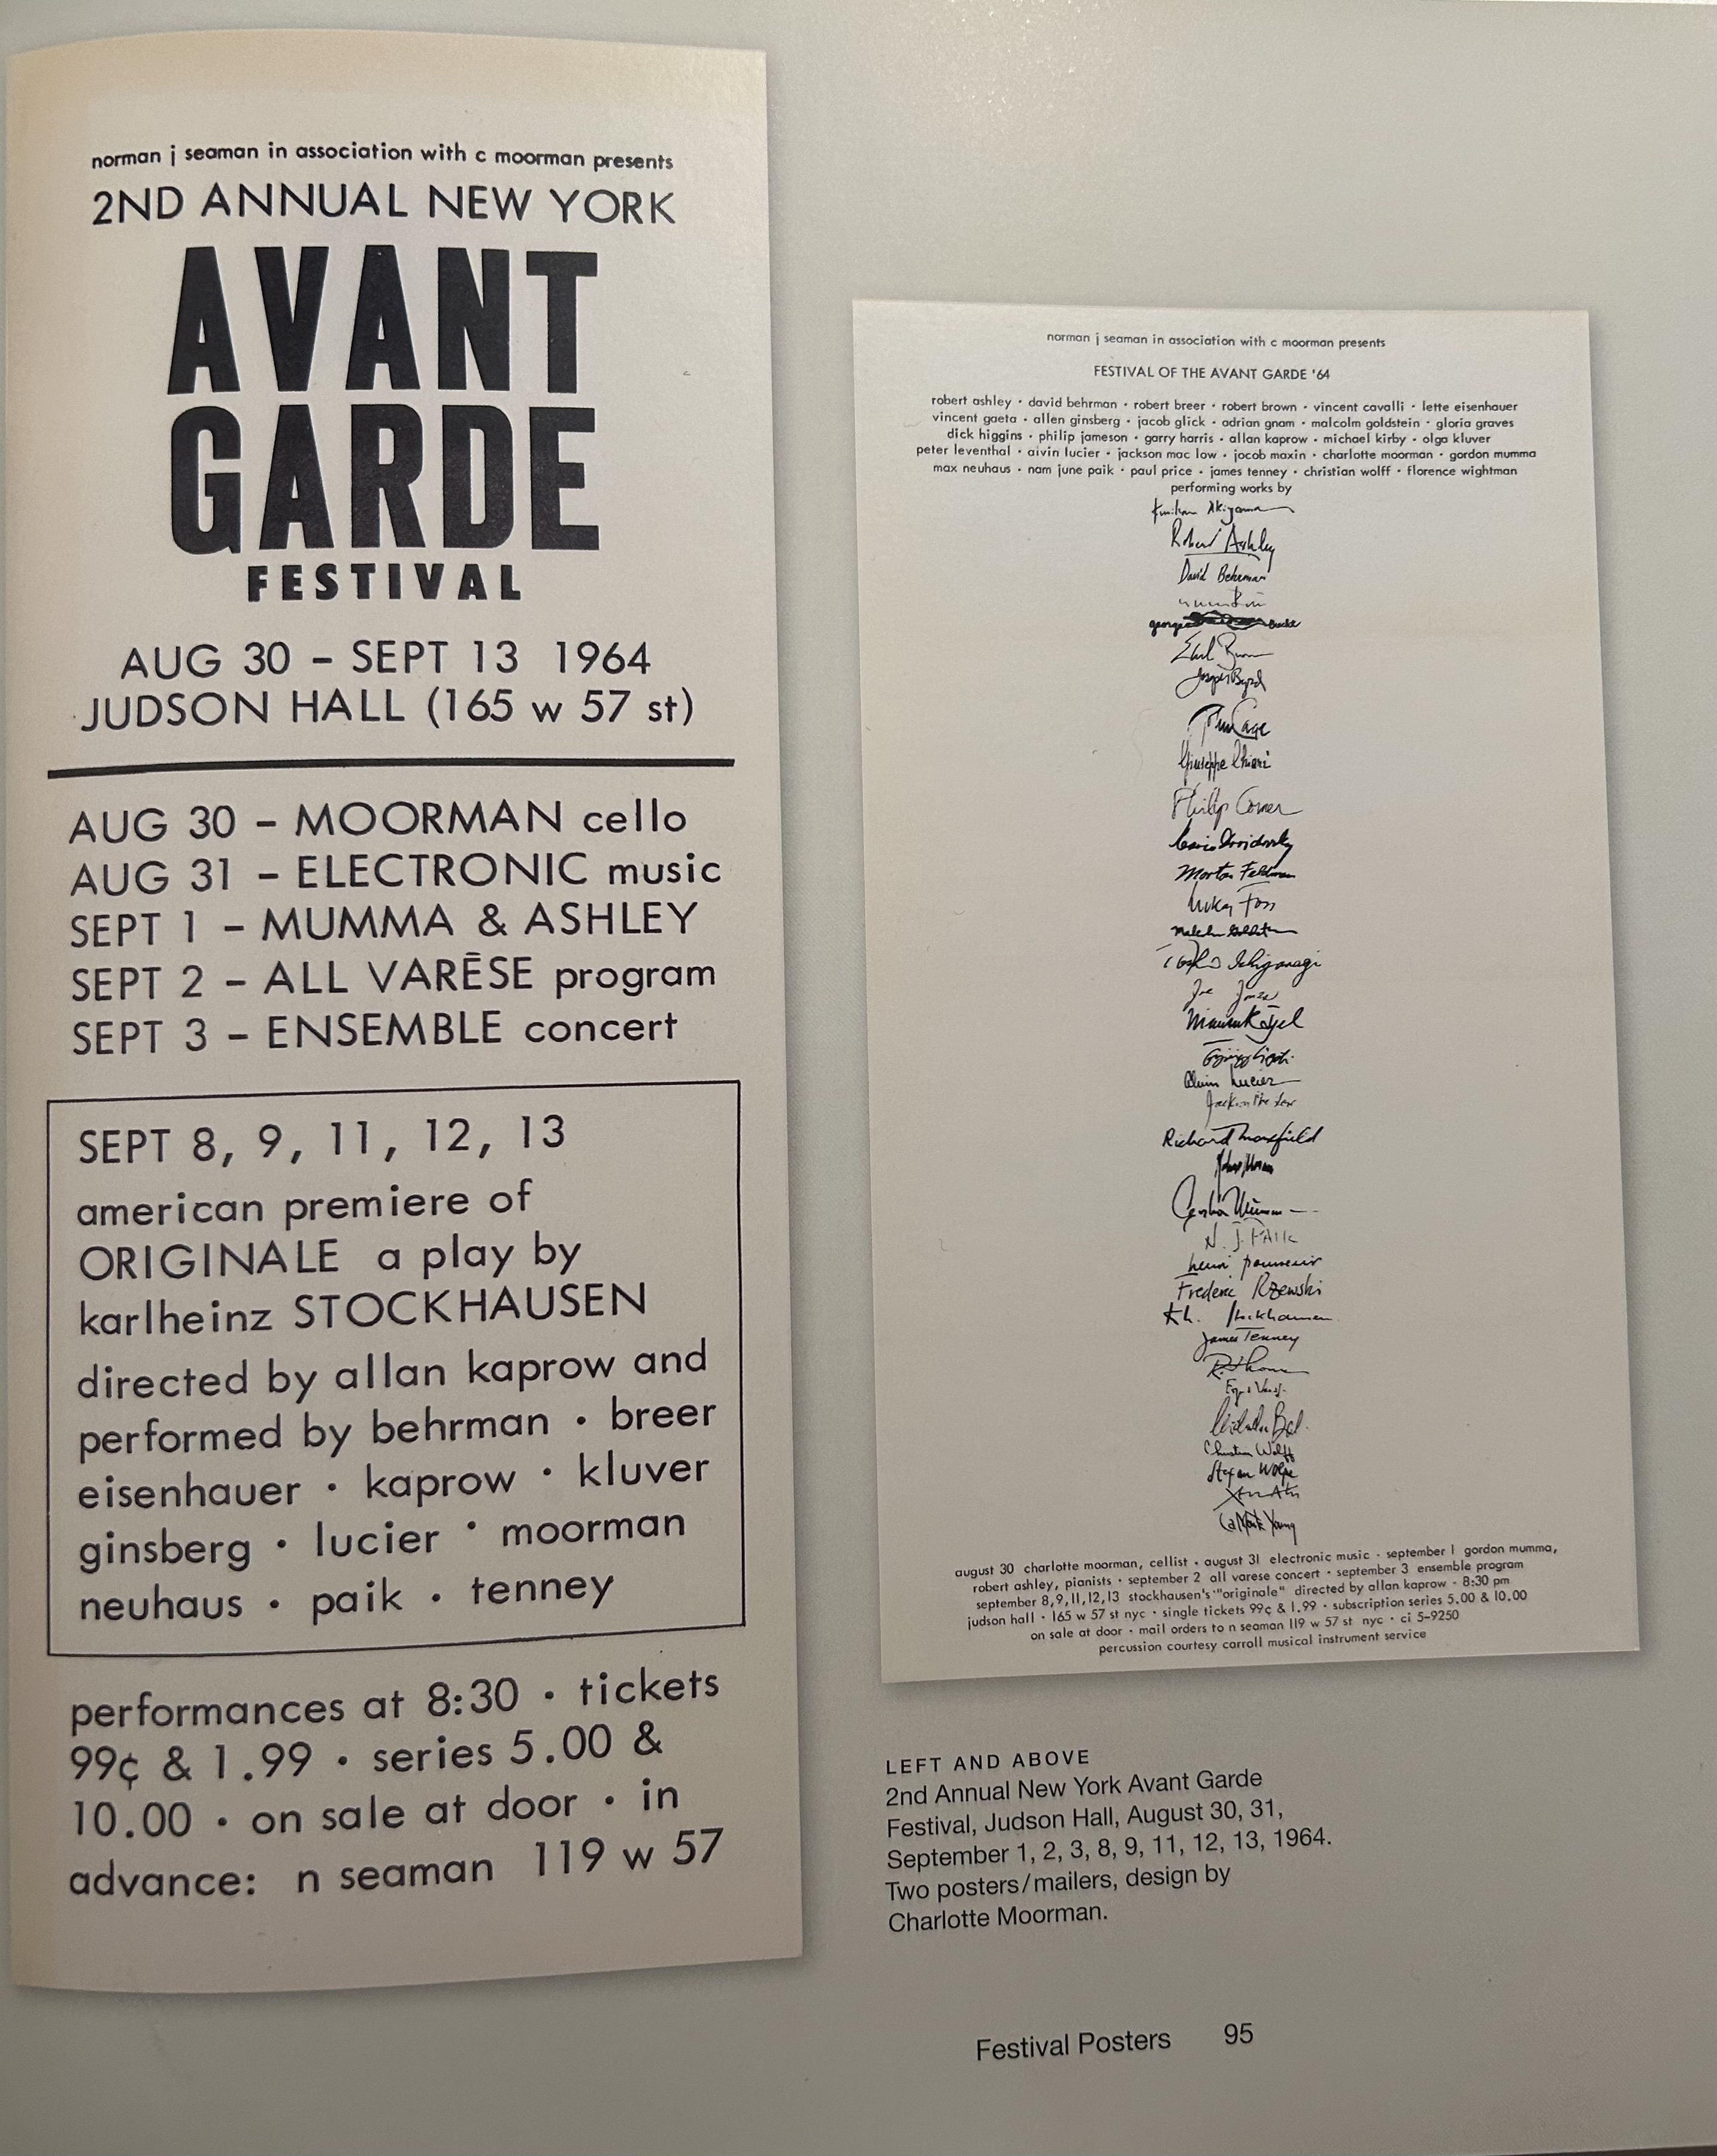 norman j seaman in association with c moorman presents
2ND ANNUAL NEW YORK
AVANT
GARDE
FESTIVAL
AUG 30 – SEPT 13 1964
JUDSON HALL (165 w 57 st)
AUG 30 – MOORMAN cello
AUG 31 – ELECTRONIC music
SEPT 1 – MUMMA & ASHLEY
SEPT 2 – ALL VARĒSE program
SEPT 3 – ENSEMBLE concert
SEPT 8, 9, 11, 12, 13
american premiere of
ORIGINALE a play by
karlheinz STOCKHAUSEN
directed by allan kaprow and
performed by behrman • breer
eisenhauer • kaprow • kluver
ginsberg • lucier • moorman
neuhaus • paik • tenney
performances at 8:30 • tickets
99¢ & 1.99 • series 5.00 &
10.00 • on sale at door • in
advance: n seaman 119 w 57
norman j seaman in association with c moorman presents
FESTIVAL OF THE AVANT GARDE '64
robert ashley • david behrman • robert breer • robert brown • vincent cavalli • lette eisenhauer
vincent gaeta • allen ginsberg • jacob glick • adrian gnam • malcolm goldstein • gloria graves
dick higgins • philip jameson • garry harris • allan kaprow • michael kirby • olga kluver
peter leventhal • aivin lucier • jackson mac low • jocob maxin • charlotte moorman • gordon mumma
max neuhaus • nam june paik • paul price • james tenney • christian wolff • florence wightman
performing works by
Akiyama
Robert Ashley
David Behrman
george
Earl Brown
Joseph Byrd
John Cage
Giuseppe Chiari
Philip Corner
Mario Davidovsky
Morton Feldman
Lukas Foss
Malcolm Goldstein
Toshi Ichiyanagi
Joe Jones
Mauricio Kagel
György Ligeti
Alvin Lucier
Jackson Mac Low
Richard Maxfield
Gordon Mumma
N. J. PAIK
henri pousseur
Frederic Rzewski
Kh. Stockhausen
James Tenney
Christian Wolff
Stefan Wolpe
La Monte Young
august 30 charlotte moorman, cellist • august 31 electronic music • september 1 gordon mumma,
robert ashley, pianists • september 2 all varese concert • september 3 ensemble program
september 8,9,11,12,13 stockhausen's "originale" directed by allan kaprow • 8:30 pm
judson hall • 165 w 57 st nyc • single tickets 99¢ & 1.99 • subscription series 5.00 & 10.00
on sale at door • mail orders to n seaman 119 w 57 st nyc • ci 5-9250
percussion courtesy carroll musical instrument service
LEFT AND ABOVE
2nd Annual New York Avant Garde
Festival, Judson Hall, August 30, 31,
September 1, 2, 3, 8, 9, 11, 12, 13, 1964.
Two posters/mailers, design by
Charlotte Moorman.
Festival Posters 95